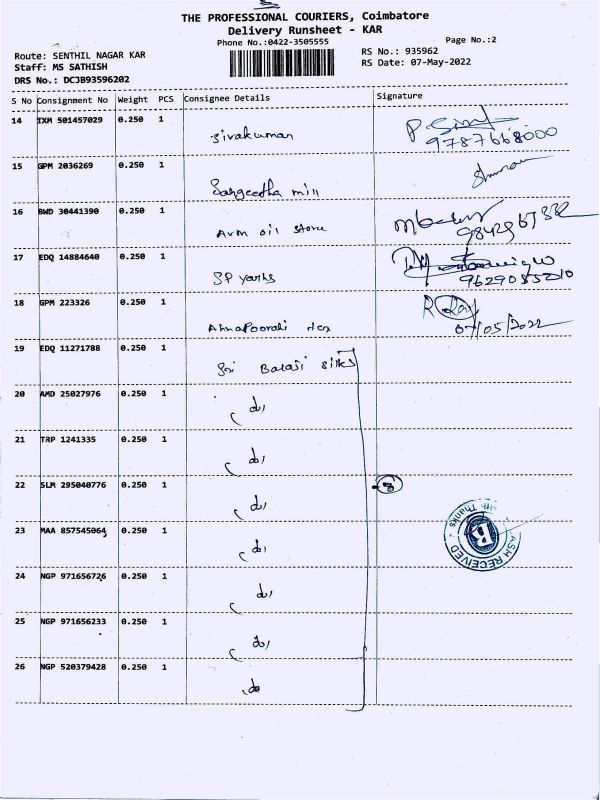 THE PROFESSIONAL COURIERS, Coimbatore
Delivery Runsheet - KAR
Phone No.:0422-3505555
Page No.:2
Route: SENTHIL NAGAR KAR
RS No.: 935962
Staff: MS SATHISH
RS Date: 07-May-2022
DRS No.: DCJB93596202
S No Consignment No Weight PCS Consignee Details Signature
14 IXM 501457029 0.250 1
Sivakumar
9787668000
15 GPM 2036269 0.250 1
Sangeetha mill
16 BWD 30441390 0.250 1
Avm oil store
17 EDQ 14884640 0.250 1
SP yarns
9629055210
18 GPM 223326 0.250 1
Annapoorani tex
07/05/2022
19 EDQ 11271788 0.250 1
Sri Balaji silks
20 AMD 25027976 0.250 1
do
21 TRP 1241335 0.250 1
do
22 SLM 295040776 0.250 1
do
8
23 MAA 857545064 0.250 1
do
24 NGP 971656726 0.250 1
do
25 NGP 971656233 0.250 1
do
26 NGP 520379428 0.250 1
do
RECEIVED
Thanks
R